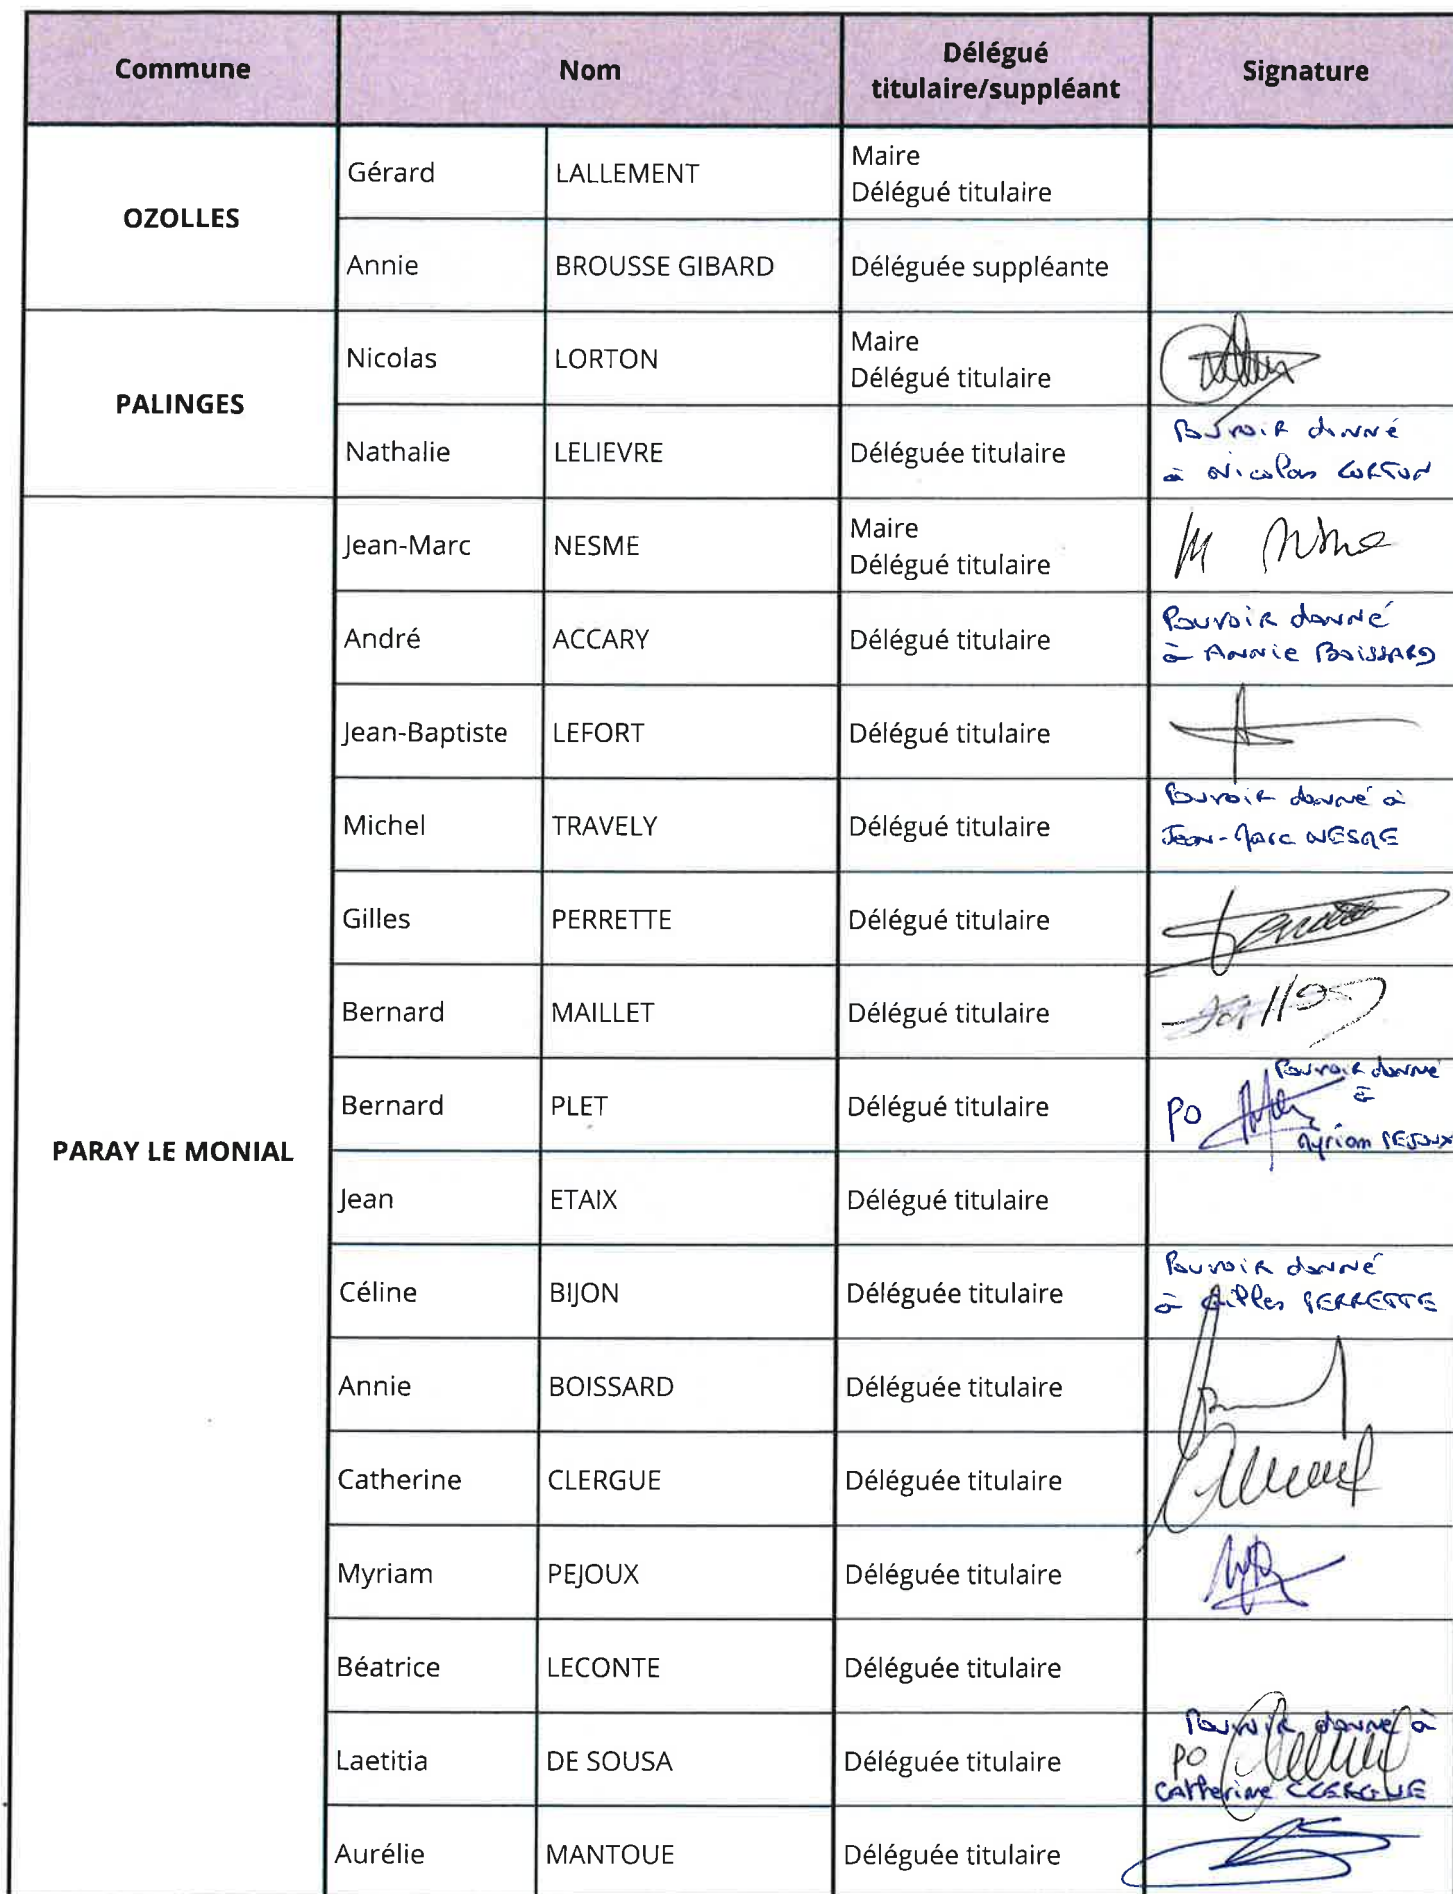 Commune Nom Délégué titulaire/suppléant Signature
OZOLLES
Gérard LALLEMENT Maire
Délégué titulaire
Annie BROUSSE GIBARD Déléguée suppléante
PALINGES
Nicolas LORTON Maire
Délégué titulaire
Nathalie LELIEVRE Déléguée titulaire Pouvoir donné
à Nicolas LORTON
PARAY LE MONIAL
Jean-Marc NESME Maire
Délégué titulaire
André ACCARY Délégué titulaire Pouvoir donné
à Annie BOISSARD
Jean-Baptiste LEFORT Délégué titulaire
Michel TRAVELY Délégué titulaire Pouvoir donné à
Jean-Marc NESME
Gilles PERRETTE Délégué titulaire
Bernard MAILLET Délégué titulaire
Bernard PLET Délégué titulaire Pouvoir donné
à
po Myriam PEJOUX
Jean ETAIX Délégué titulaire
Céline BIJON Déléguée titulaire Pouvoir donné
à Gilles PERRETTE
Annie BOISSARD Déléguée titulaire
Catherine CLERGUE Déléguée titulaire
Myriam PEJOUX Déléguée titulaire
Béatrice LECONTE Déléguée titulaire
Laetitia DE SOUSA Déléguée titulaire Pouvoir donné à
po
Catherine CLERGUE
Aurélie MANTOUE Déléguée titulaire